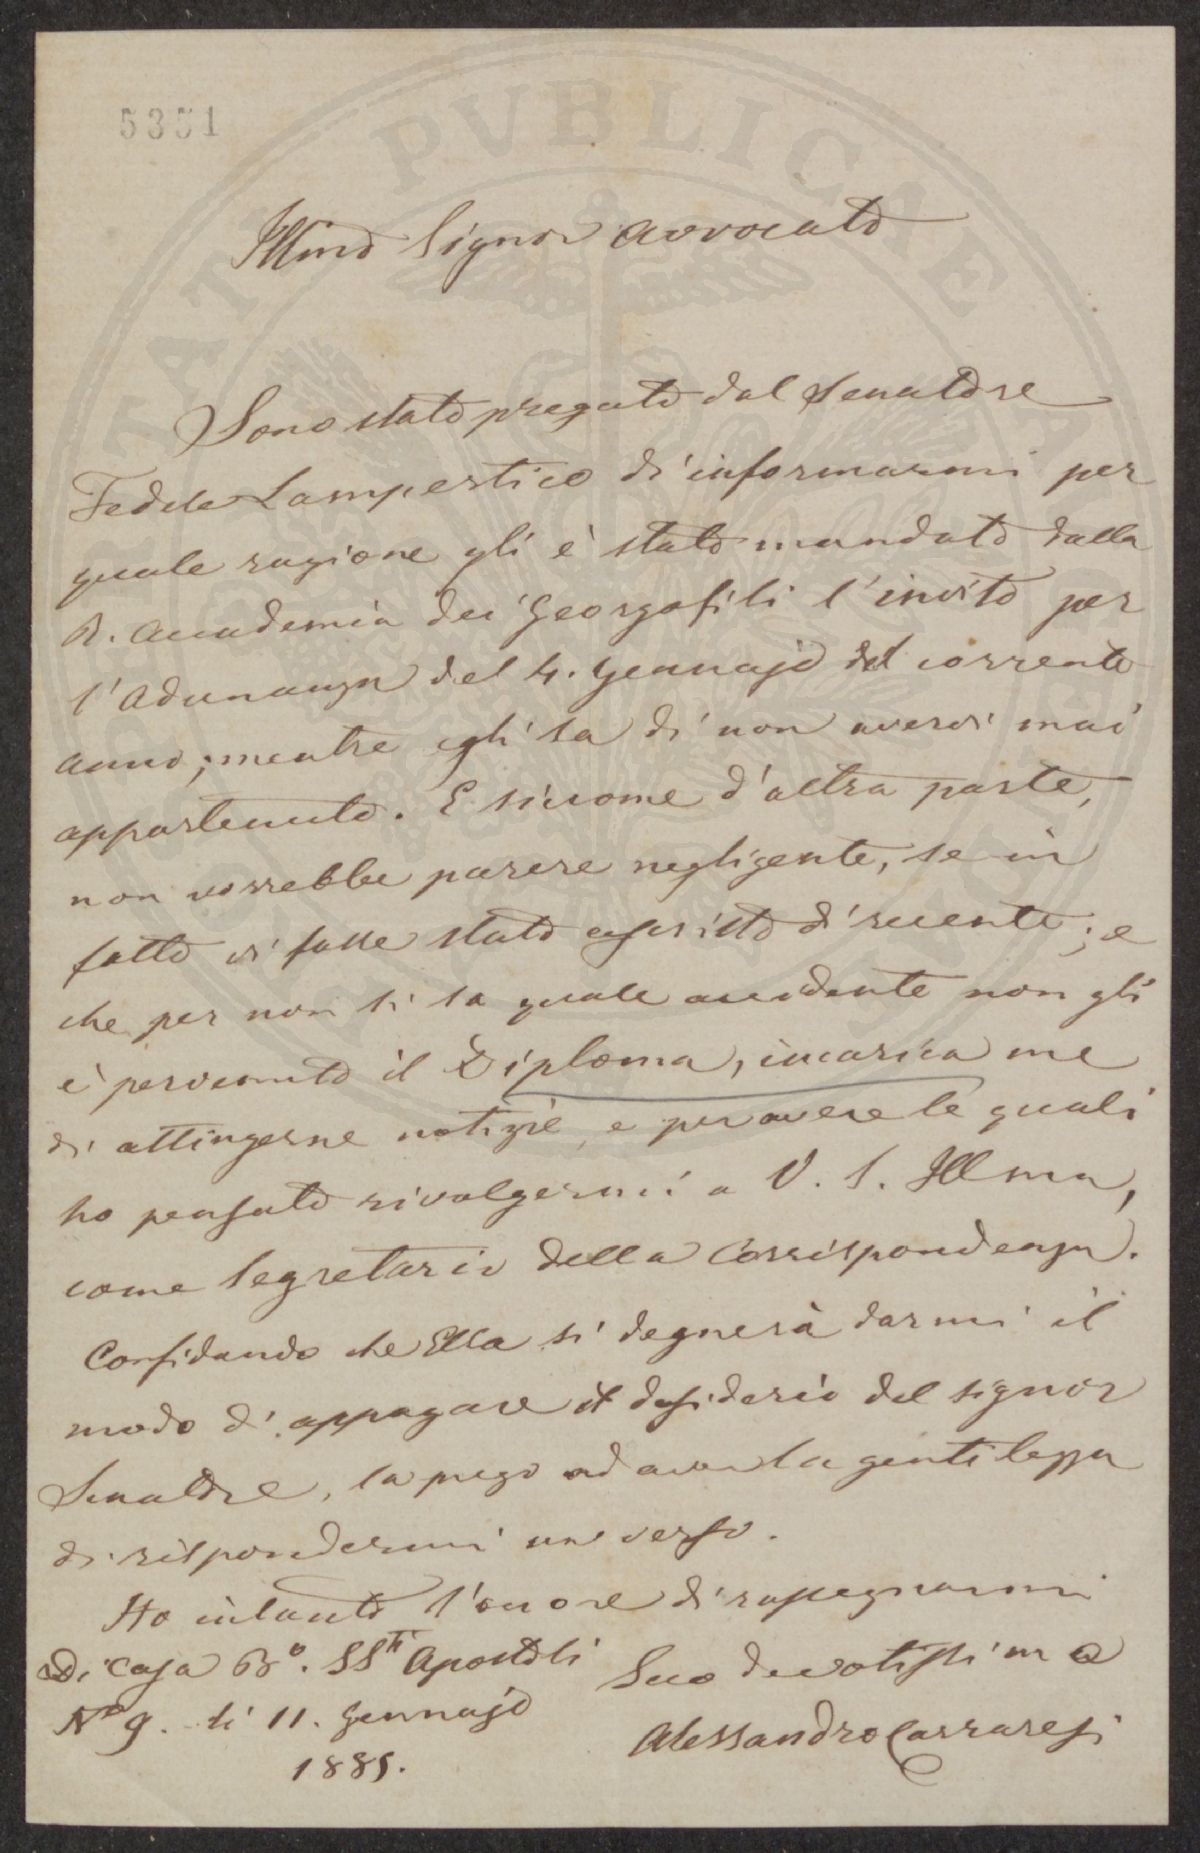 5351
Illmo Signor Avvocato
Sono stato pregato dal Senatore
Fedele Lampertico di informarmi per
quale ragione gli è stato mandato dalla
R. Accademia dei Georgofili l'invito per
l'Adunanza del 4. Gennajo del corrente
anno; mentre egli sa di non avervi mai
appartenuto. E siccome d'altra parte,
non vorrebbe parere negligente, se in
fatto vi fosse stato ascritto di recente; e
che per non si sa quale accidente non gli
è pervenuto il Diploma, incarica me
di attingerne notizie, e per avere le quali
ho pensato rivolgermi a V. S. Illma,
come Segretario della Corrispondenza.
Confidando che Ella si degnerà darmi il
modo di appagare il desiderio del signor
Senatore, la prego ad aver la gentilezza
di rispondermi un verso.
Ho intanto l'onore di rassegnarmi
Di casa Bo. SSti Apostoli
No 9. li 11. Gennajo
1885.
Suo devotissimo
Alessandro Carraresi
PVBLICAE